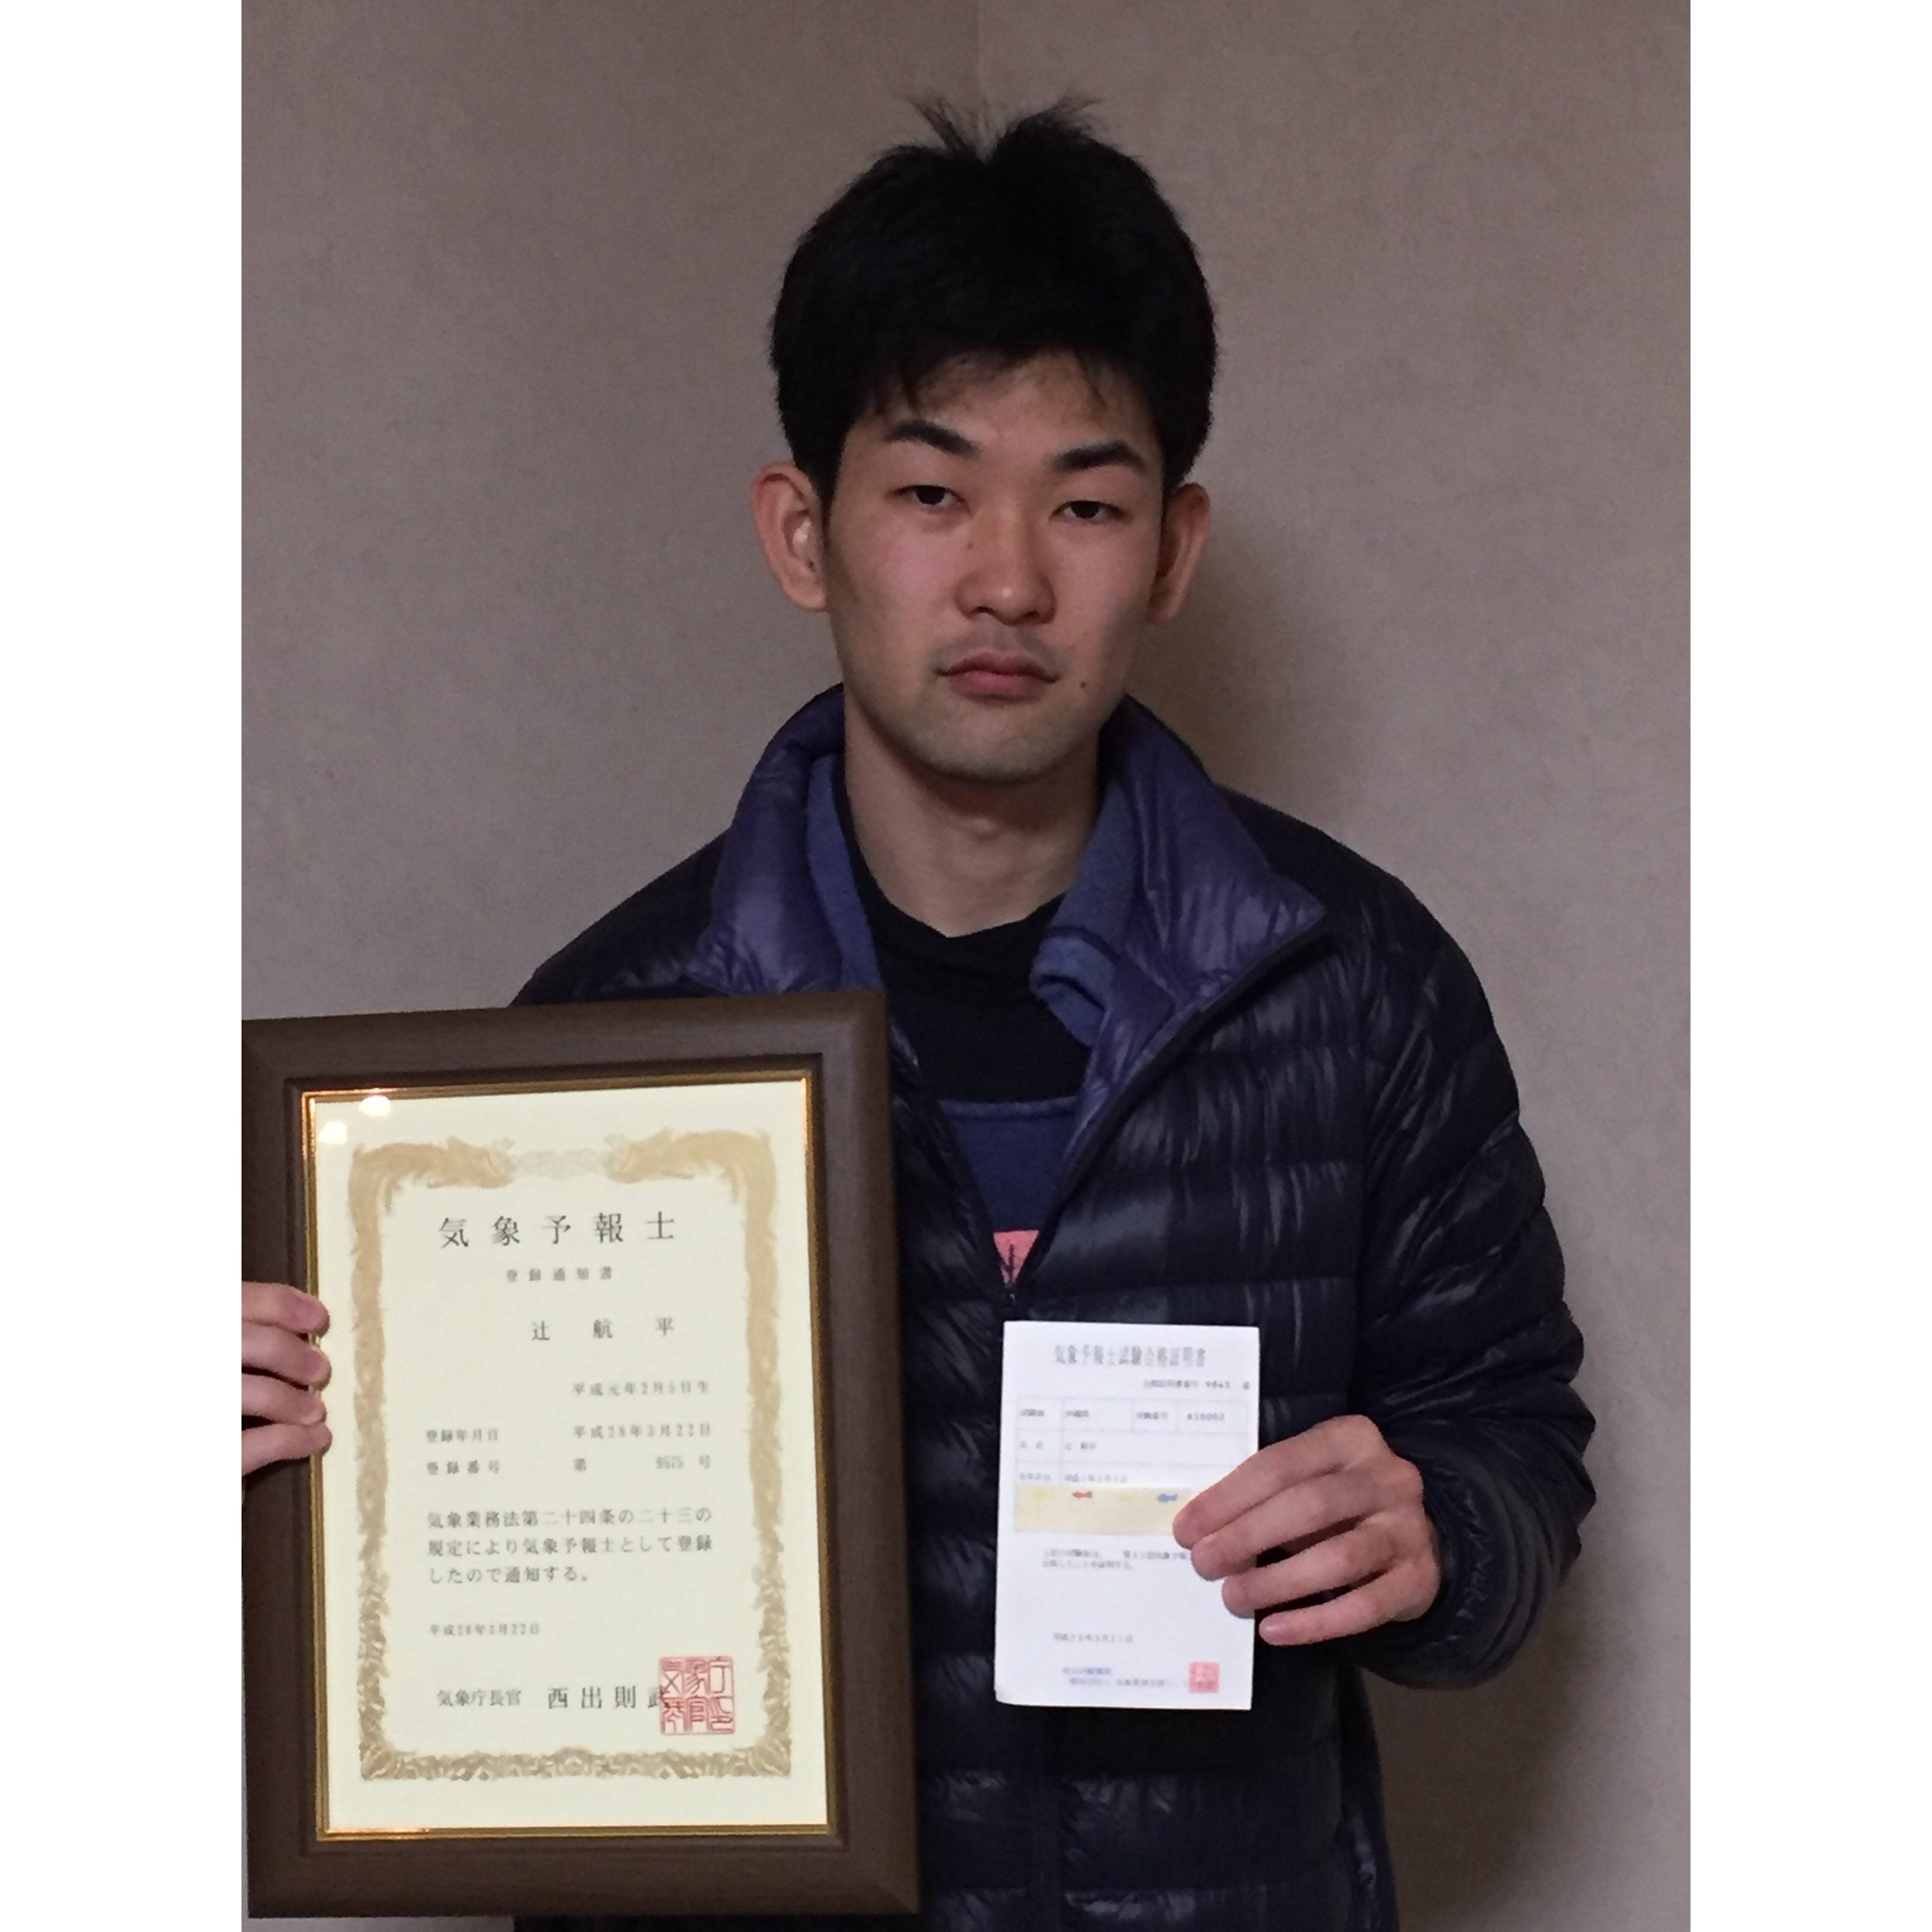 気象予報士
登録通知書
辻 航 平
平成元年2月5日生
登録年月日 平成28年3月22日
登録番号 第 9575 号
気象業務法第二十四条の二十三の
規定により気象予報士として登録
したので通知する。
平成28年3月22日
気象庁長官 西出則武
気象予報士試験合格証明書
合格証明書番号
試験地 受験番号 A10002
氏名 辻 航平
生年月日